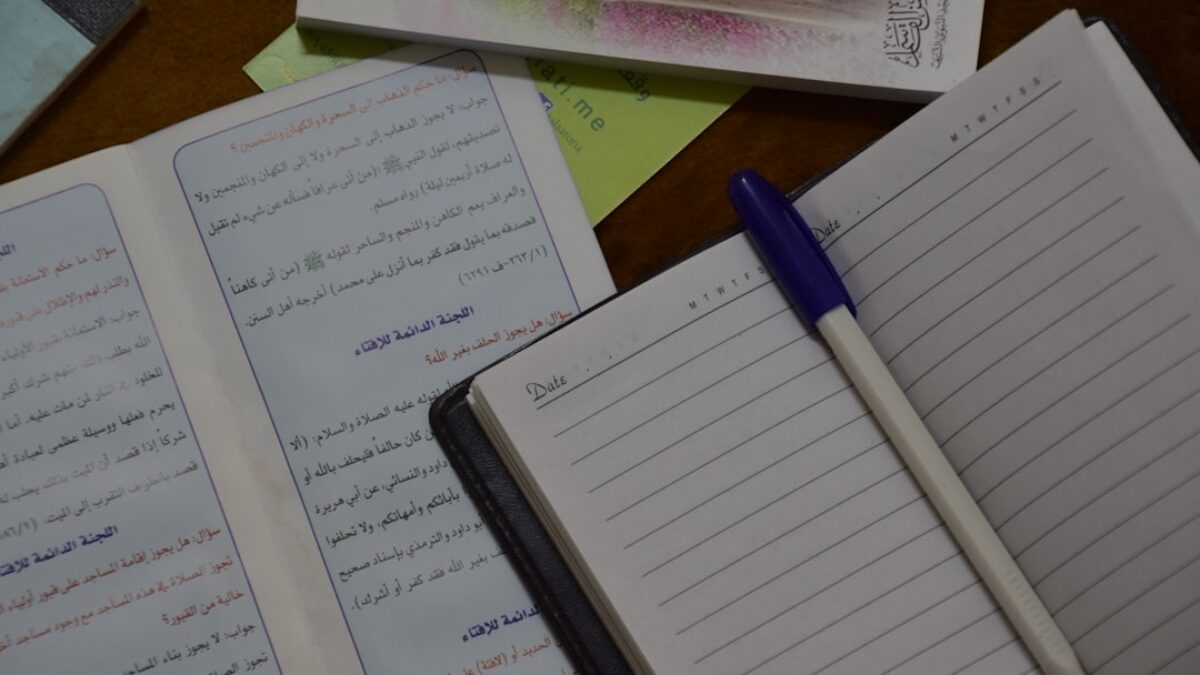 سؤال: ما حكم الذهاب إلى السحرة والكهان والمنجمين ؟
جواب: لا يجوز الذهاب إلى السحرة ولا إلى الكهان والمنجمين ولا
تصديقهم، لقول النبي ﷺ : (من أتى عرافاً فسأله عن شيء لم تقبل
له صلاة أربعين ليلة) رواه مسلم.
والعراف يعم الكاهن والمنجم والساحر لقوله ﷺ (من أتى كاهناً
فصدقه بما يقول فقد كفر بما أنزل على محمد) أخرجه أهل السنن.
(٢٦٣/١-ف ٦٢٩١)
اللجنة الدائمة للإفتاء
سؤال: هل يجوز الحلف بغير الله؟
لقوله عليه الصلاة والسلام: (ألا
من كان حالفاً فليحلف بالله أو
داود والنسائي، عن أبي هريرة
بآبائكم وأمهاتكم، ولا تحلفوا
بو داود والترمذي بإسناد صحيح
بغير الله فقد كفر أو أشرك).
الدائمة للإفتاء
الحديد أو (لافتة)
سؤال: ما حكم الاستغاثة
والنذر لهم والإظلال على
جواب: الاستغاثة بقبور الأولياء
الله يطلب، ذلك منهم شرك أكبر
للخلود في النار لمن مات عليه. أما
يحرم فعلها ووسيلة عظمى لعبادة
شركاً إذا قصد أن الميت بذلك يجلب
قصد بالطواف التقرب إلى الميت.
اللجنة الدائمة للإفتاء
سؤال: هل يجوز إقامة المساجد على قبور أولياء
تجوز الصلاة في هذه المساجد مع وجود مساجد
خالية من القبور؟
جواب: لا يجوز بناء المساجد
تجوز
ati.me
Date
M T W T F S
Date
M T W T F S S